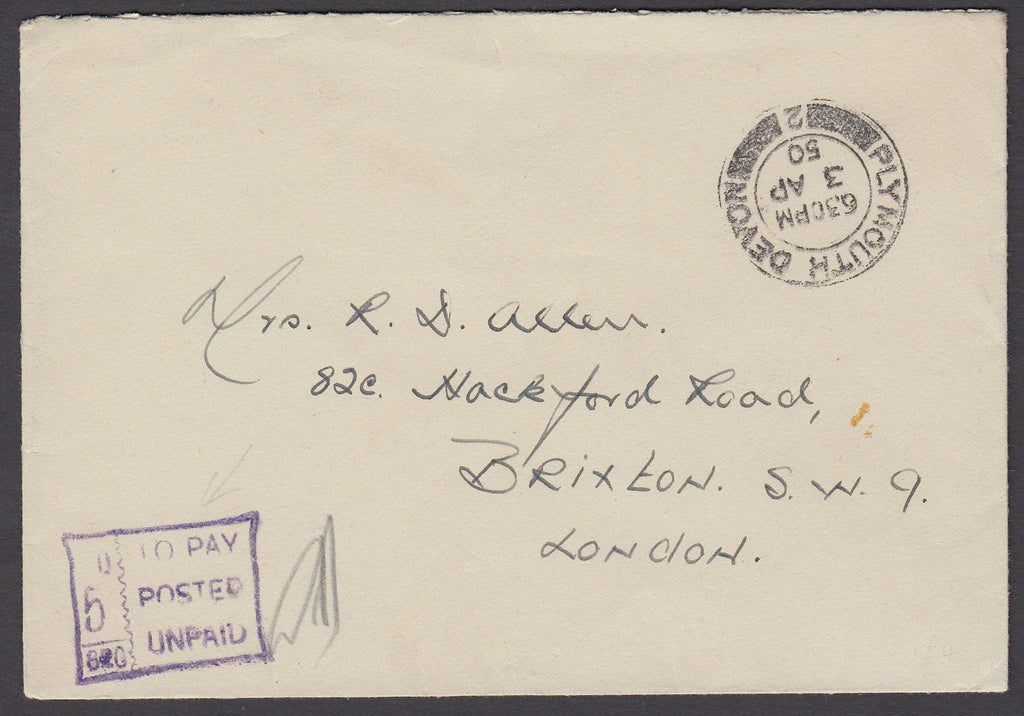 PLYMOUTH DEVON
2
6 30 PM
3 AP
50
Mrs. R. D. Allen.
82c. Hackford Road,
BRIXTON. S. W. 9.
LONDON.
TO PAY
5D
POSTED
UNPAID